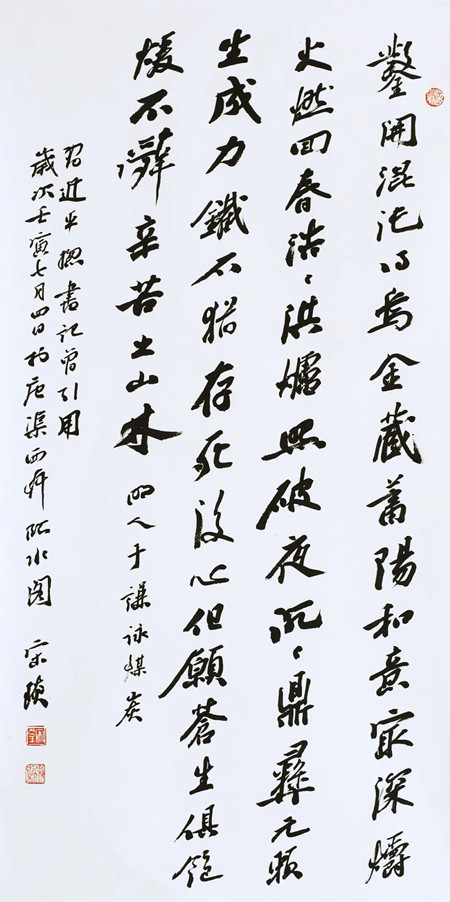 鑿開混沌得烏金藏蓄陽和意最深爝
火燃回春浩〻洪爐照破夜沉〻鼎彝元賴
生成力鐵石猶存死後心但願蒼生俱飽
煖不辭辛苦出山林 明人于謙詠煤炭
習近平總書記曾引用
歲次壬寅七月四日於唐渠西岸臨水閣 宋